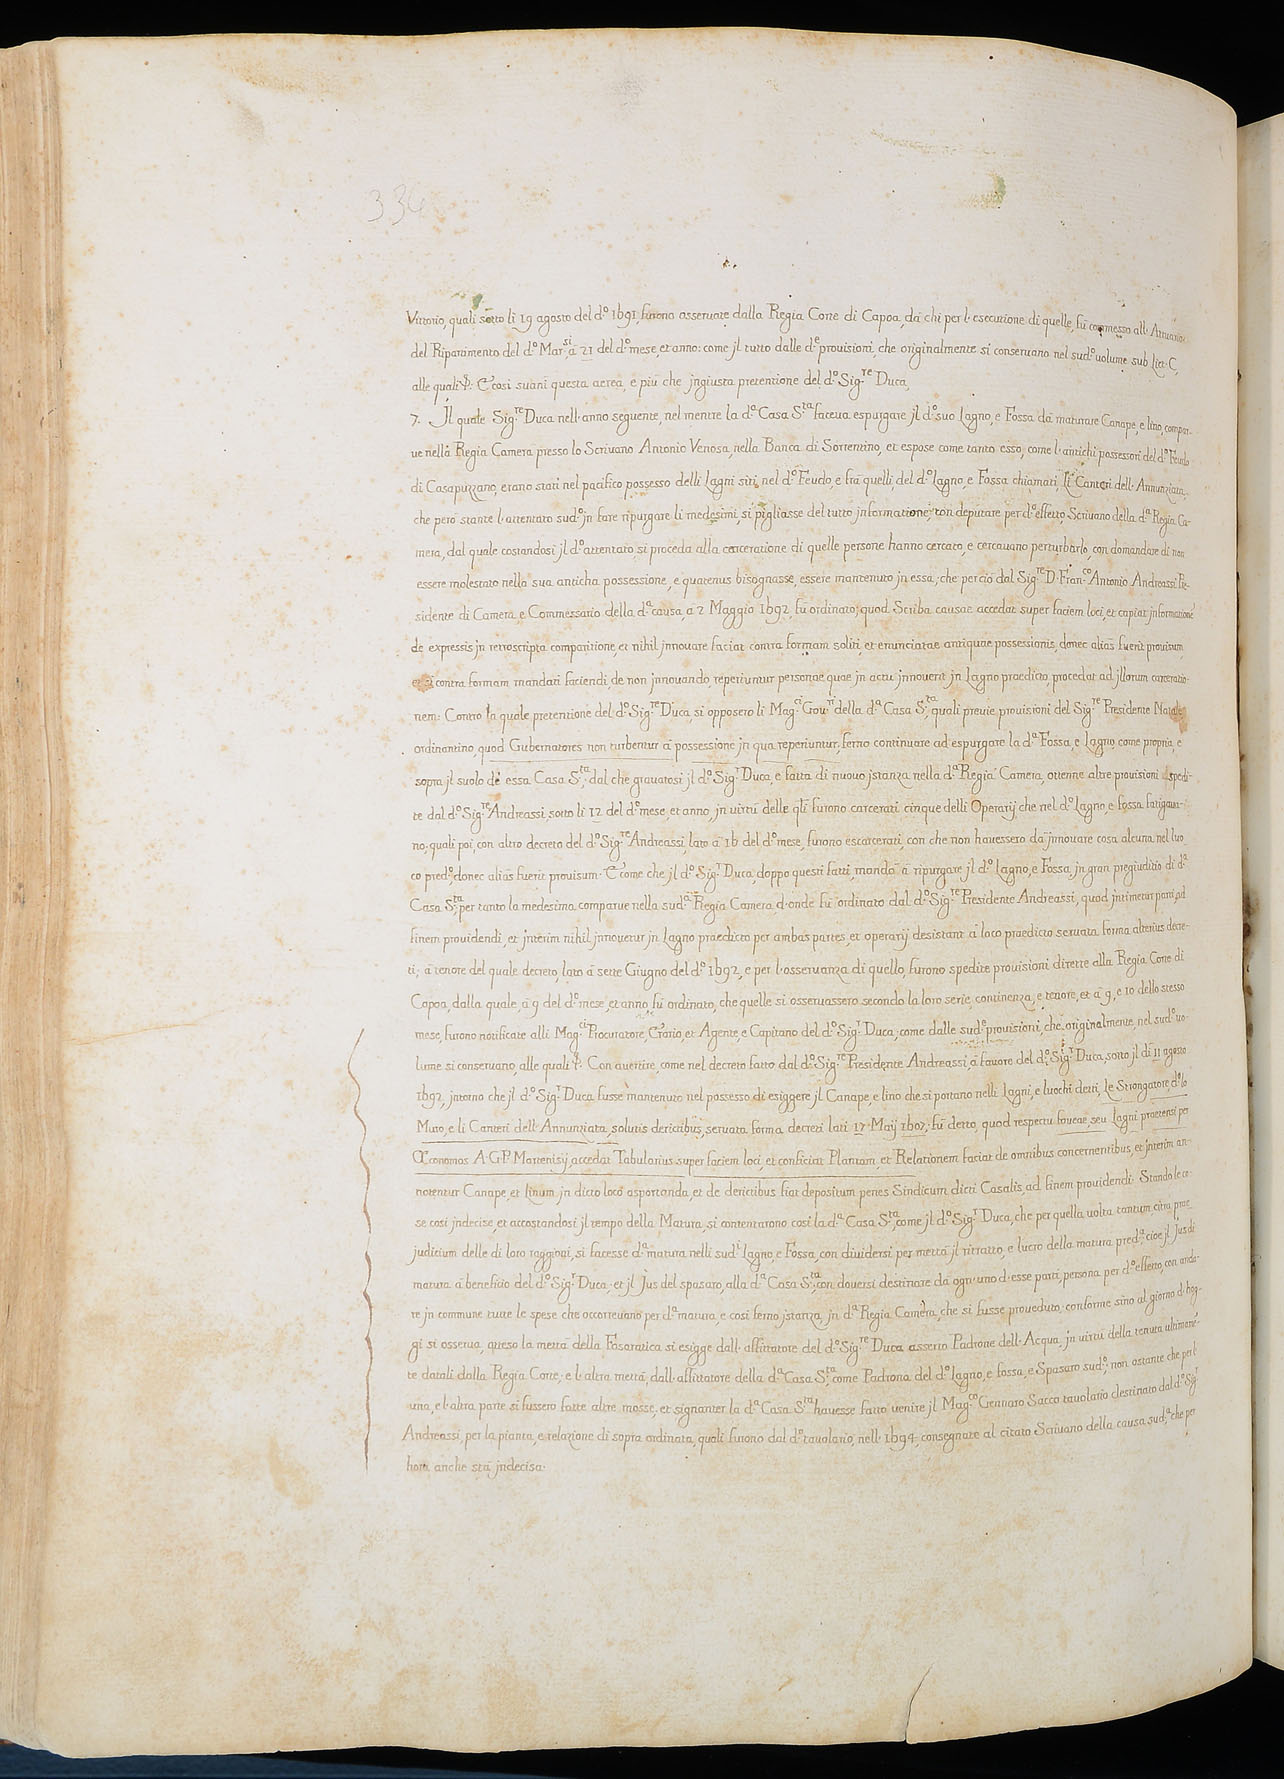 334
Vittorio, quali sotto li 19 agosto del d.º 1691, furono osseruate dalla Regia Corte di Capoa, dà chi per l'esecutione di quelle, fù commesso all'Attuario
del Ripartimento del d.º Mar.si à 21 del d.º mese, et anno: come jl tutto dalle d.e prouisioni, che originalmente si conseruano nel sud.º uolume sub Litt. C,
alle quali &c. E così suanì questa aerea, e più che jngiusta pretentione del d.º Sig.re Duca,
7. Jl quale Sig.re Duca nell'anno seguente, nel mentre la d.a Casa S.ta faceua espurgare jl d.º suo Lagno, e Fossa dà maturare Canape, e lino, compar-
ue nella Regia Camera presso lo Scriuano Antonio Venosa, nella Banca di Sorrentino, et espose come tanto esso, come l'antichi possessori del d.º Feudo
di Casapuzzano, erano stati nel pacifico possesso delli Lagni siti nel d.º Feudo, e frà quelli, del d.º Lagno, e Fossa chiamati, Li Canteri dell'Annunziata,
che però stante l'attentato sud.º jn fare ripurgare li medesimi, si pigliasse del tutto jnformatione, con deputare per d.º effetto, Scriuano della d.a Regia Ca-
mera, dal quale costandosi jl d.º attentato, si proceda alla carceratione di quelle persone hanno cercato, e cercauano perturbarlo, con domandare di non
essere molestato nella sua anticha possessione, e quatenus bisognasse, essere mantenuto jn essa; che perciò dal Sig.re D. Fran.co Antonio Andreassi Pre-
sidente di Camera, e Commessario della d.a causa, a 2 Maggio 1692, fù ordinato; quod Scriba causae accedat super faciem loci, et capiat jnformatione
de expressis jn retroscripta comparitione, et nihil jnnouare faciat contra formam soliti, et enunciatae antiquae possessionis, donec aliàs fuerit prouisum,
et si contra formam mandati faciendi, de non jnnouando, reperiuntur personae quae jn actu jnnouerit jn Lagno praedicto, procedat ad jllorum carceratio-
nem: Contro la quale pretentione del d.º Sig.re Duca, si opposero li Mag.ci Gou.ri della d.a Casa S.ta, quali preuie prouisioni del Sig.re Presidente Natale
ordinantino, quod Gubernatores non turbentur à possessione jn qua reperiuntur, ferno continuare ad espurgare la d.a Fossa, e Lagno, come propria, e
sopra jl suolo de essa Casa S.ta; dal che grauatosi jl d.º Sig.r Duca, e fatta di nuouo jstanza nella d.a Regia Camera, ottenne altre prouisioni spedi-
te dal d.º Sig.re Andreassi, sotto li 12 del d.º mese, et anno, jn virtù delle q.li furono carcerati cinque delli Operarij, che nel d.º Lagno, e fossa fatigaua-
no, quali poi, con altro decreto del d.º Sig.re Andreassi, lato à 16 del d.º mese, furono escarcerati, con che non hauessero dà jnnouare cosa alcuna, nel luo-
co pred.º, donec aliàs fuerit prouisum. E come che jl d.º Sig.r Duca, doppo questi fatti, mandò à ripurgare jl d.º Lagno, e Fossa, jn gran pregiuditio di d.a
Casa S.ta, per tanto la medesima comparue nella sud.a Regia Camera, d'onde fù ordinato dal d.º Sig.re Presidente Andreassi, quod jntimetur parti, ad
finem prouidendi, et jnterim nihil jnnouetur jn Lagno praedicto per ambas partes, et operarij desistant à loco praedicto seruata forma alterius decre-
ti; à tenore del quale decreto, lato à sette Giugno del d.º 1692, e per l'osseruanza di quello, furono spedite prouisioni dirette alla Regia Corte di
Capoa, dalla quale, à 9 del d.º mese, et anno, fù ordinato, che quelle si osseruassero secondo la loro serie, continenza, e tenore, et à 9, e 10 dello stesso
mese, furono notificate alli Mag.ci Procuratore, Erario, et Agente, e Capitano del d.º Sig.r Duca, come dalle sud.e prouisioni, che originalmente, nel sud.º uo-
lume si conseruano, alle quali &c. Con auertire, come nel decreto fatto dal d.º Sig.re Presidente Andreassi, à fauore del d.º Sig.r Duca, sotto jl dì 11 agosto
1692, jntorno che jl d.º Sig.r Duca fusse mantenuto nel possesso di esiggere jl Canape, e lino che si portano nelli Lagni, e luochi detti, Le Strongatore, d.º lo
Muro, e li Canteri dell'Annunziata, solutis derictibus, seruata forma decreti lati 17 Maij 1607; fù detto, quod respectu foueae, seu Lagni praetensi per
Œconomos A.G.P. Martenisij, accedat Tabularius super faciem loci, et conficiat Plantam, et Relationem faciat de omnibus concernentibus, et jnterim an-
notentur Canape, et Linum, jn dicto loco asportanda, et de derictibus fiat depositum penes Sindicum dicti Casalis, ad finem prouidendi. Stando le co-
se così jndecise, et accostandosi jl tempo della Matura, si contentarono così la d.a Casa S.ta, come jl d.º Sig.r Duca, che per quella uolta tantum citra prae-
judicium delle di loro raggioni, si facesse d.a matura nelli sud.i Lagno, e Fossa, con diuidersi per mettà jl ritratto, e lucro della matura pred.a; cioè jl Jus di
matura à beneficio del d.º Sig.r Duca, et jl Jus del spasaro, alla d.a Casa S.ta, con douersi destinare dà ogn'uno d'esse parti, persona per d.º effetto, con anda-
re jn commune tutte le spese che occorreuano per d.a matura, e così ferno jstanza, jn d.a Regia Camera, che si fusse proueduto; conforme sino al giorno d'hog-
gi si osserua, atteso la mettà della Fosaratica si esigge dall'affittatore del d.º Sig.re Duca asserto Padrone dell'Acqua, jn uirtù della tenuta ultimame-
te datali dalla Regia Corte; e l'altra mettà, dall'affittatore della d.a Casa S.ta, come Padrona del d.º Lagno, e fossa, e Spasaro sud.º; non ostante che per l'
una, e l'altra parte si fussero fatte altre mosse, et signanter la d.a Casa S.ta hauesse fatto uenire jl Mag.co Gennaro Sacco tauolario destinato dal d.º Sig.r
Andreassi, per la pianta, e relazione di sopra ordinata, quali furono dal d.º tauolario, nell'1694, consegnate al citato Scriuano della causa sud.a, che per
hora anche stà jndecisa.